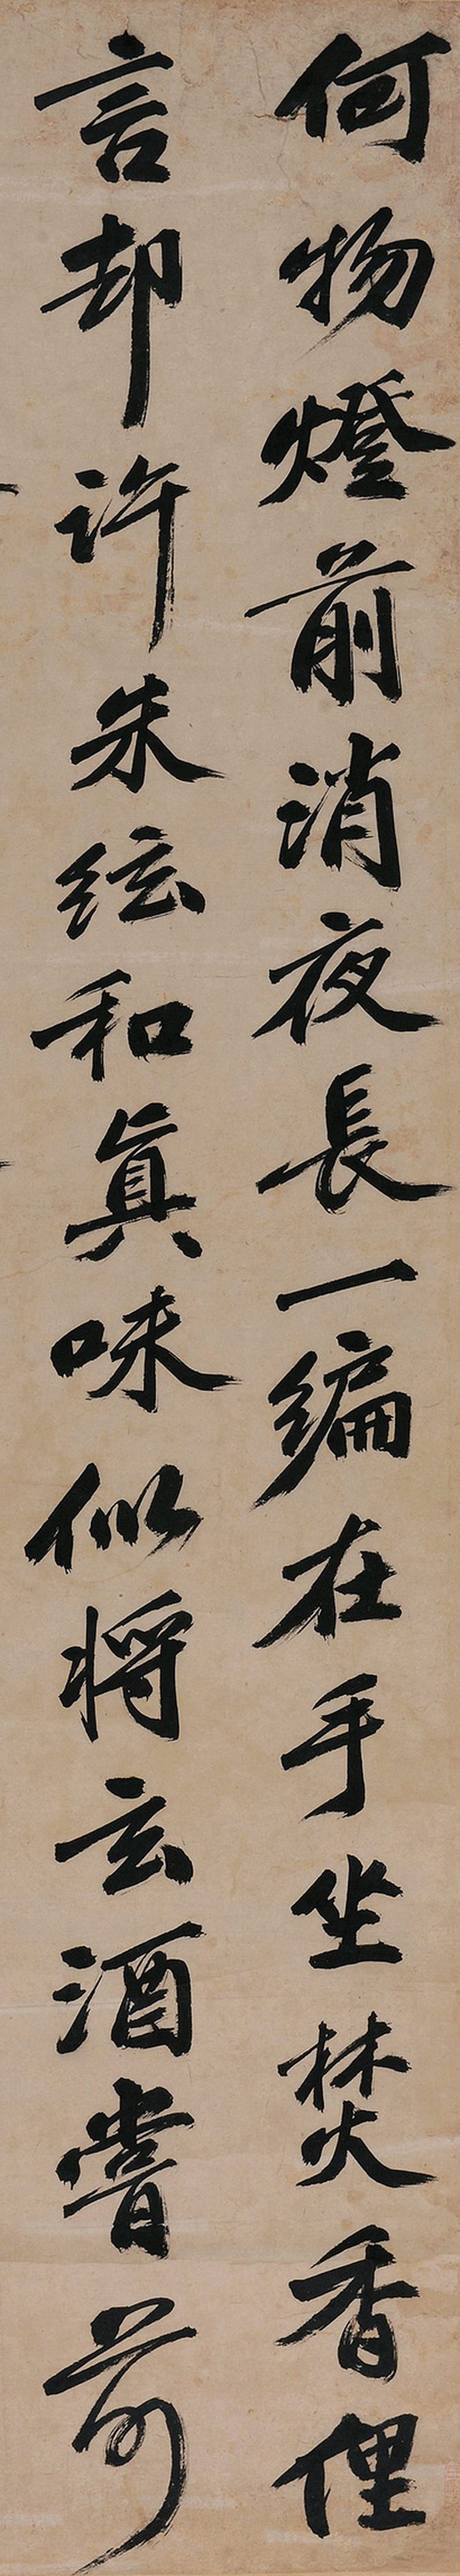 何物燈前消夜長一編在手坐焚香俚
言却許朱絃和真味似將玄酒嘗前